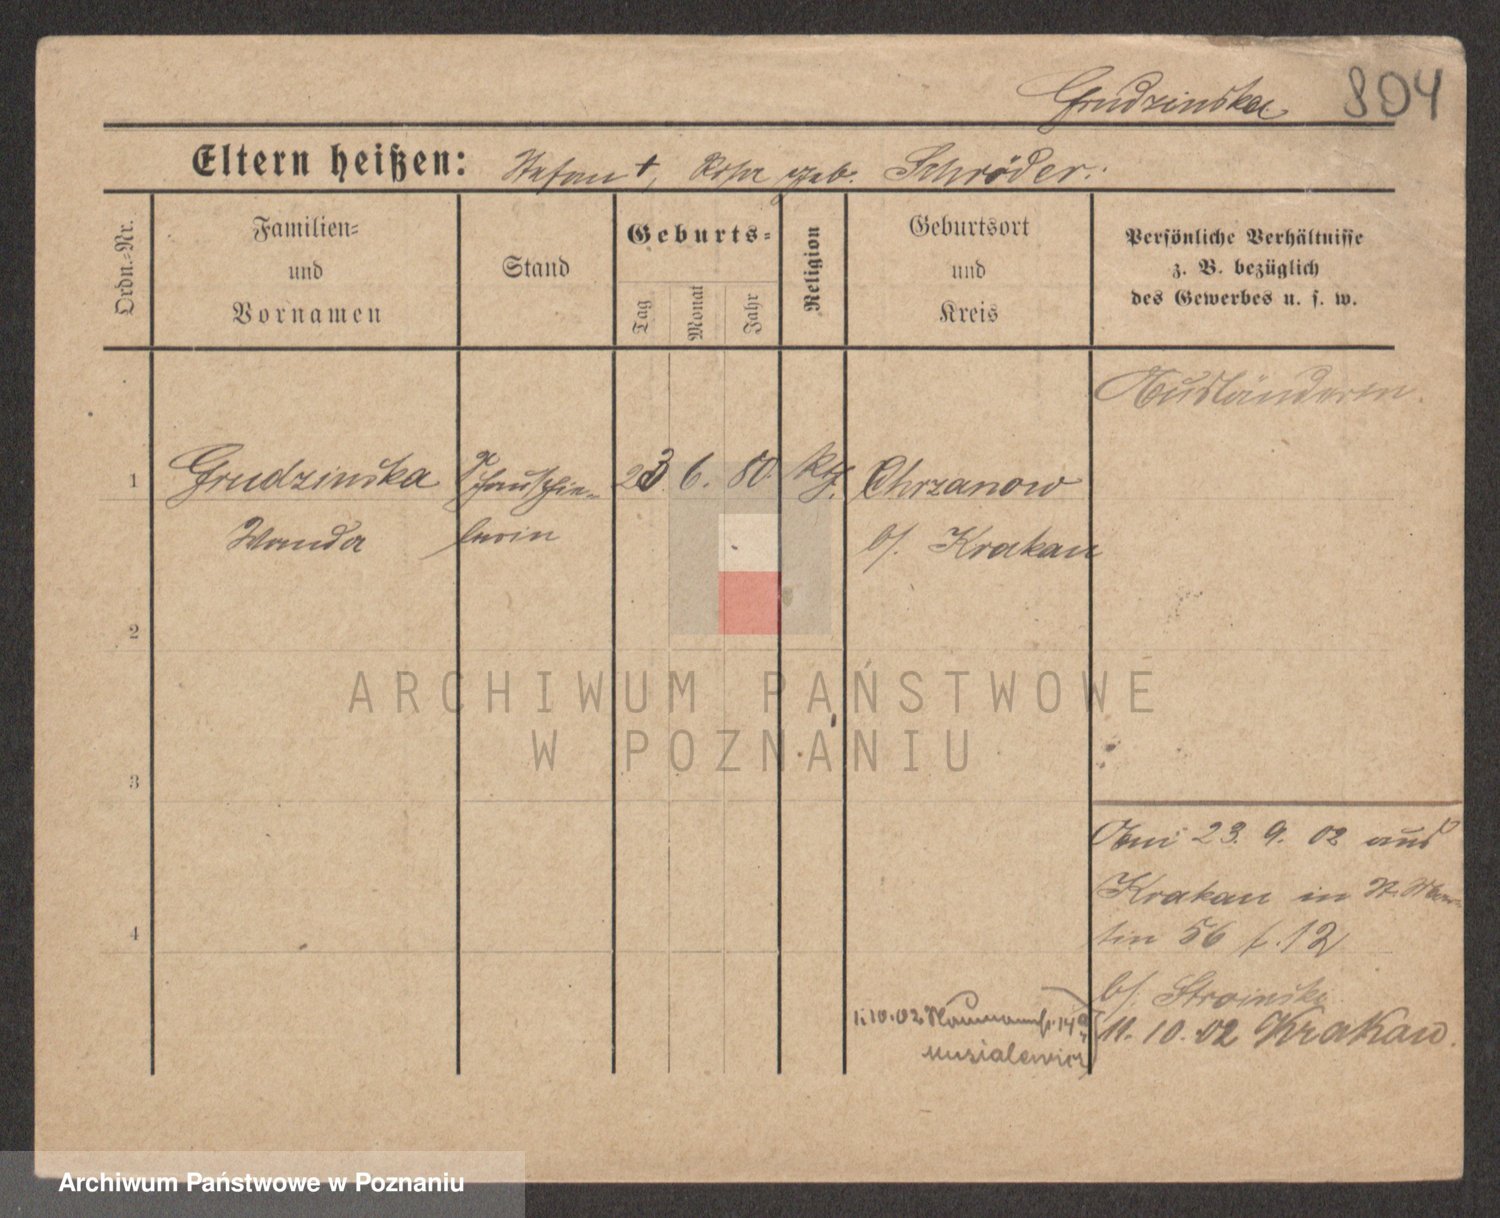 Grudzinska 804
Eltern heißen: Stefan †, Rosa geb. Schröder.
Ordn.-Nr.
Familien-
und
Vornamen
Stand
Geburts-
Tag
Monat
Jahr
Religion
Geburtsort
und
Kreis
Persönliche Verhältnisse
z. B. bezüglich
des Gewerbes u. s. w.
Ausländerin.
1 Grudzinska Schauspie- 23. 6. 80. Chrzanow
Wanda lerin b/. Krakau
2
3
4
ARCHIWUM PAŃSTWOWE
W POZNANIU
23. 9. 02 aus
Krakau in St. Mar-
tin 56 12
b/. Stroinski
1.10.02 Naumannst. 14
Musialewicz
11. 10. 02 Krakau.
Archiwum Państwowe w Poznaniu